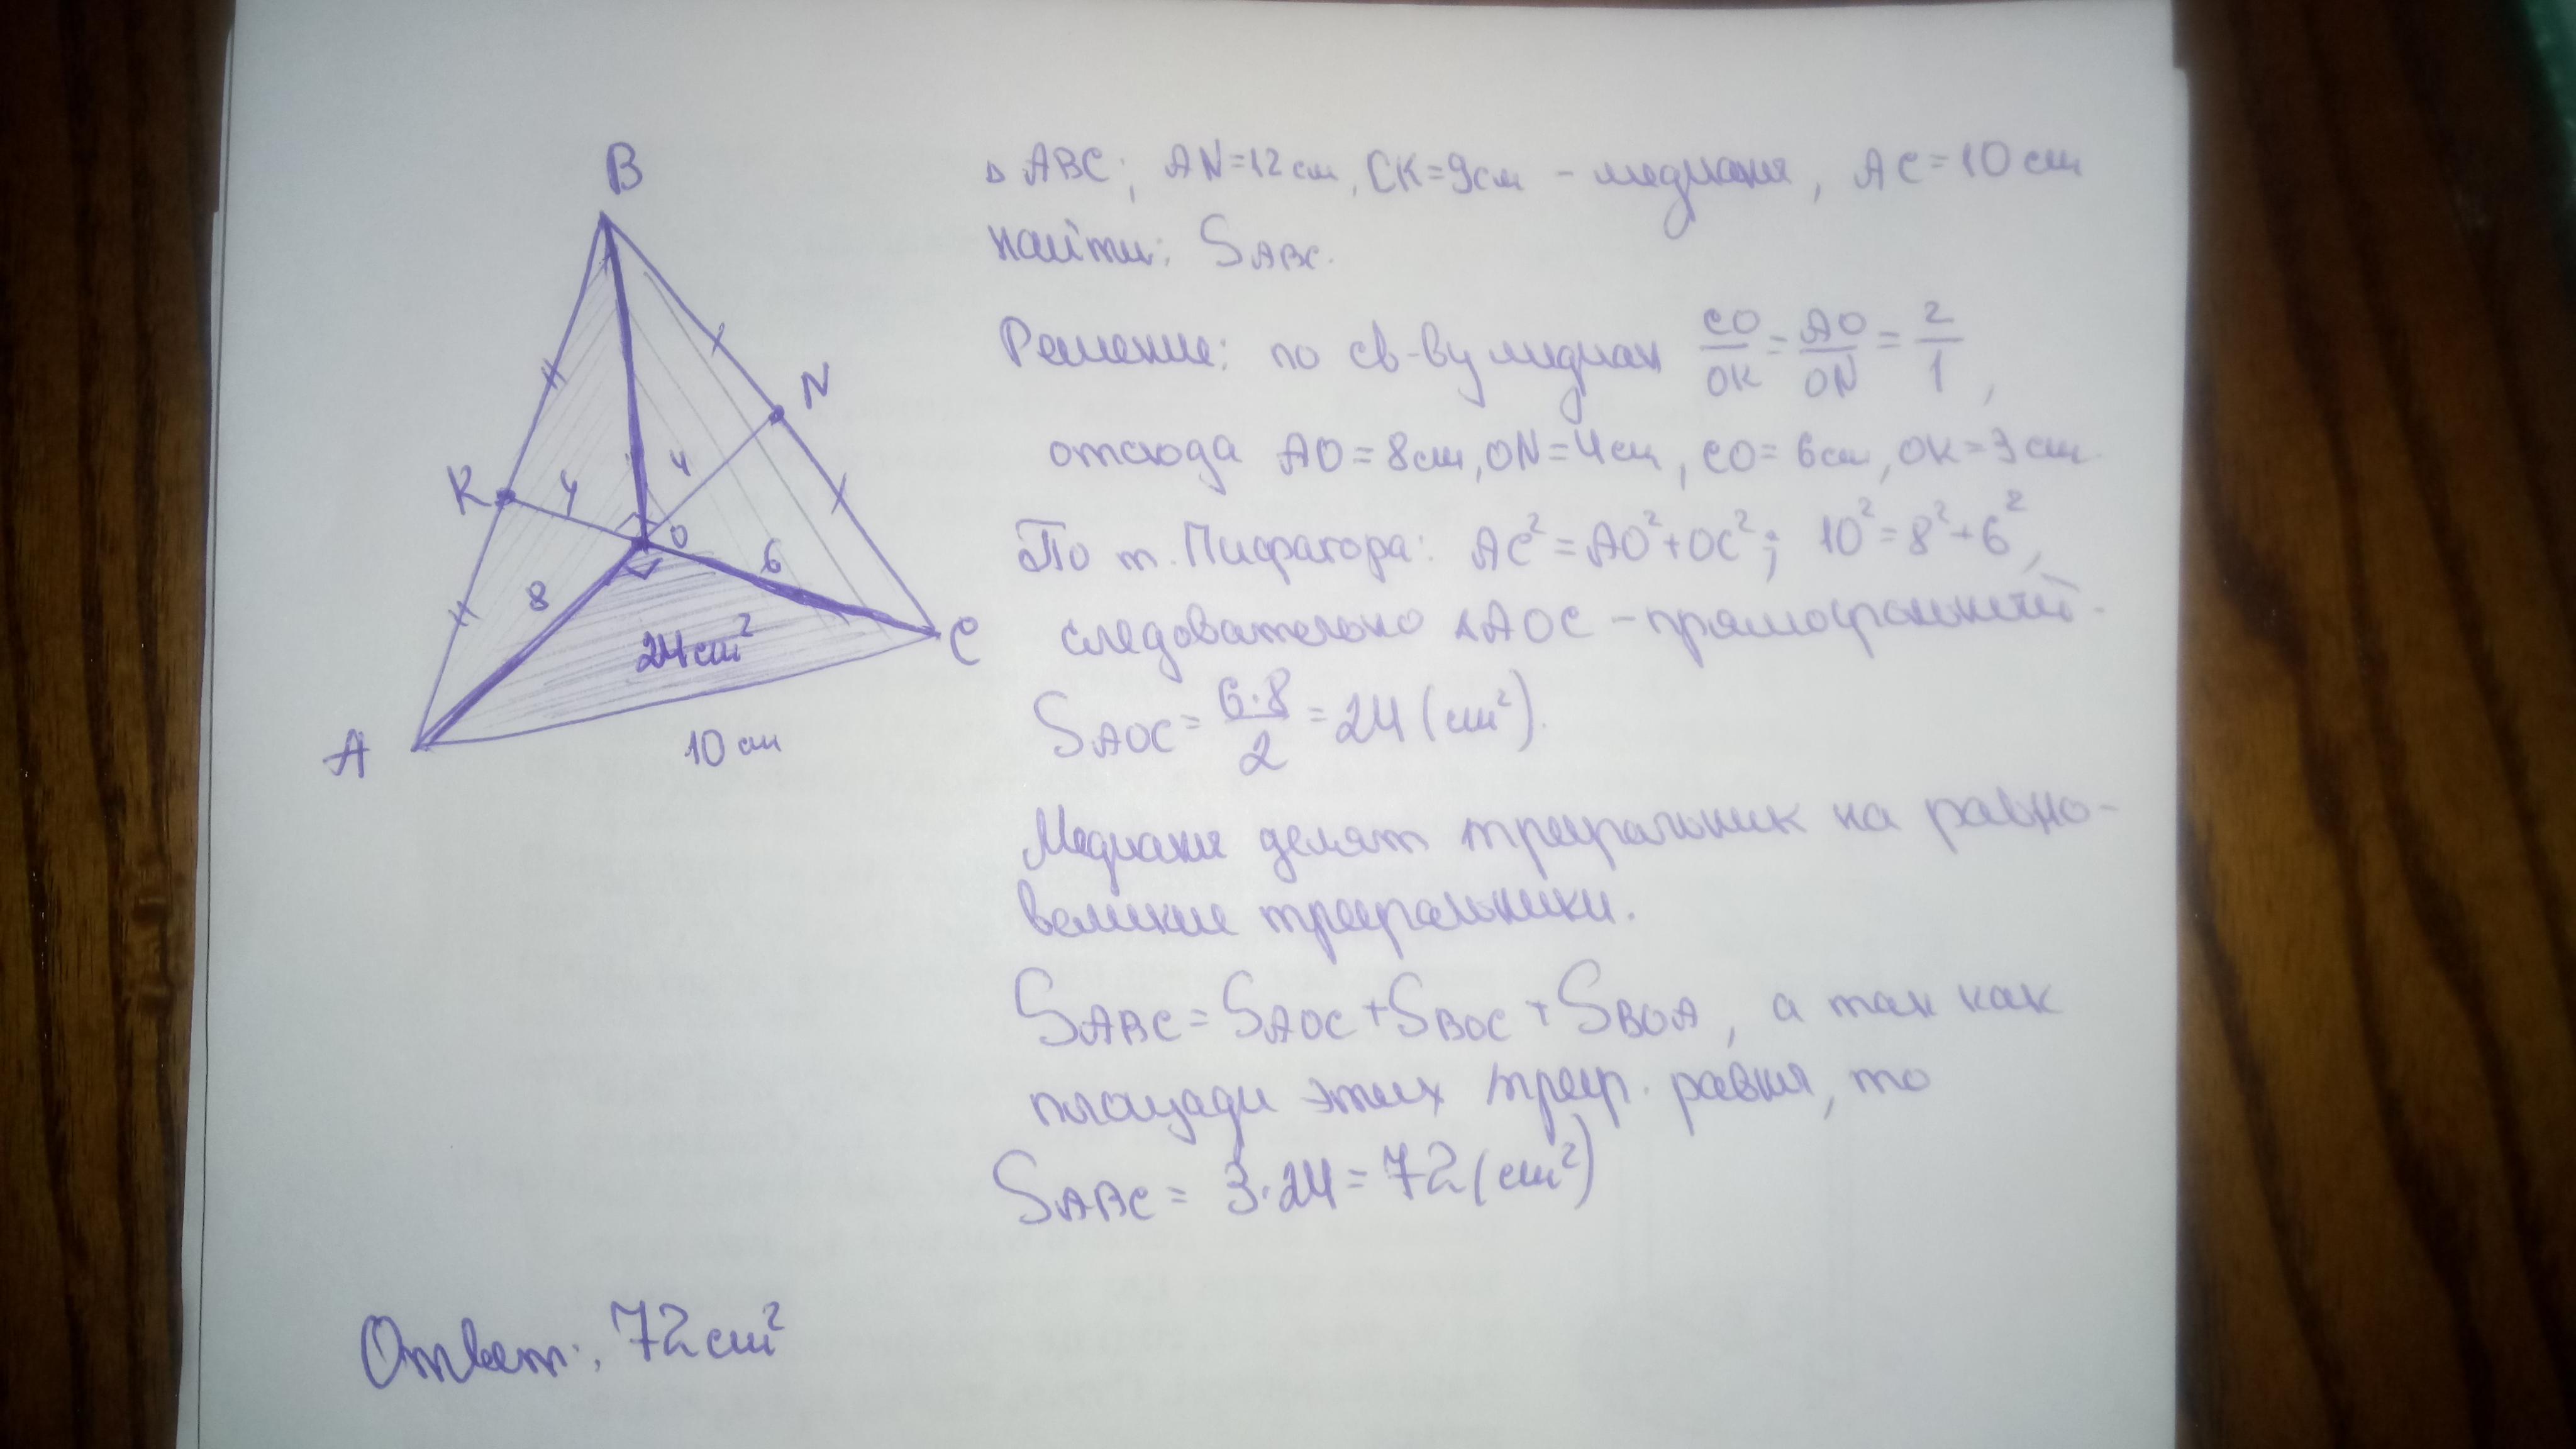 B
N
K
4
4
O
6
8
24 см²
C
A
10 см
△ ABC; AN=12 см, CK=9см - медианы, AC=10 см
найти: S ABC.
Решение: по св-ву медиан CO/OK = AO/ON = 2/1,
отсюда AO=8см, ON=4см, CO=6см, OK=3 см.
По т. Пифагора: AC²=AO²+OC²; 10²=8²+6²,
следовательно △AOC - прямоугольный.
S AOC = 6·8/2 = 24 (см²).
Медианы делят треугольник на равно-
великие треугольники.
S ABC = S AOC + S BOC + S BOA, а так как
площади этих треуг. равны, то
S ABC = 3·24=72 (см²)
Ответ: 72 см²